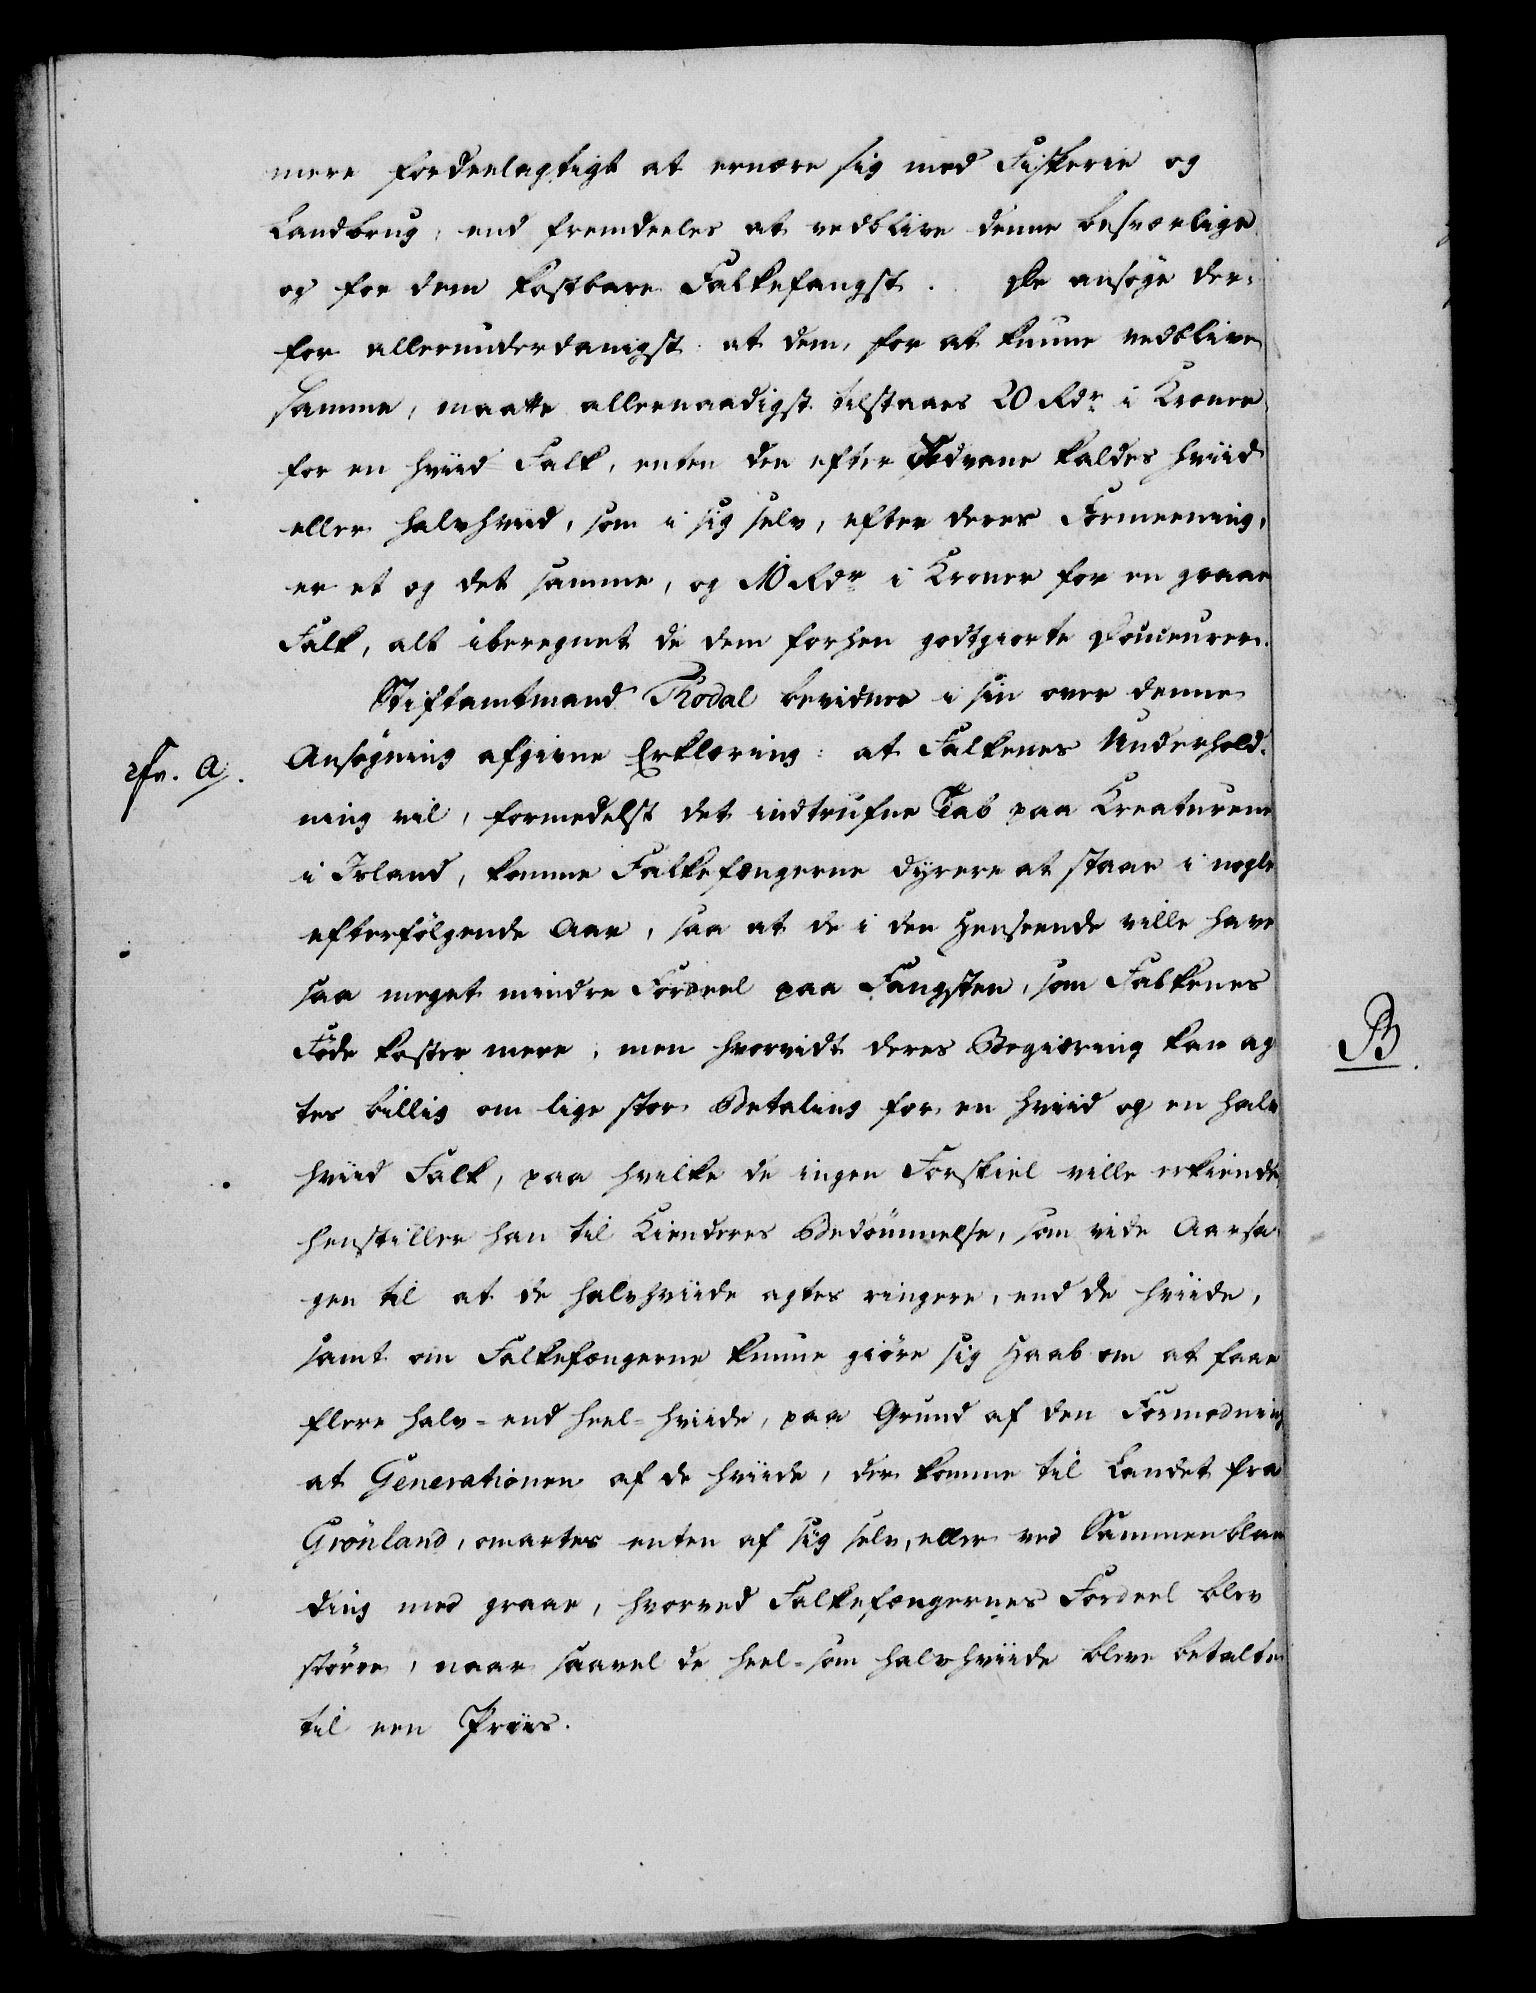 mere fordeelagtigt at ernære sig med Fiskerie og
Landbrug, end fremdeeles at vedblive denne besværlige
og for dem kostbare Falkefangst. De ansøge der-
for allerunderdanigst at dem, for at kunne vedblive
samme, maatte allernaadigst tilstaaes 20 Rdr i Croner
for en hviid Falk, enten den efter Sædvane kaldes hviid
eller halvhviid, som i sig selv, efter deres Formeening,
er et og det samme, og 10 Rdr i Croner for en graae
Falk, alt iberegnet de dem forhen godtgiorte Douceurer.
Stiftamtmand Thodal bevidner i sin over denne
cfr. a. Ansøgning afgivne Erklæring: at Falkenes Underhold-
ning vil, formedelst det indtrufne Tab paa Creaturene
i Island, komme Falkefængerne dyrere at staae i nogle
efterfølgende Aar, saa at de i den Henseende ville have
saa meget mindre Fordeel paa Fangsten, som Falkenes
Føde koster mere, men hvorvidt deres Begiæring kan ag
tes billig om lige stor Betaling for en hviid og en halv
hviid Falk, paa hvilke de ingen Forskiel ville erkiende,
henstiller han til Kienderes Bedømmelse, som vide Aarsa-
gen til at de halvhviide agtes ringere, end de hviide,
samt om Falkefængerne kunne giøre sig Haab om at faae
flere halv- end heel-hviide, paa Grund af den Formodning
at Generationen af de hviide, der komme til Landet fra
Grønland, vanarter enten af sig selv, eller ved Sammenblan
ding med graae, hvorved Falkefængernes Fordeel blev
større, naar saavel de heel- som halvhviide bleve betalte
til een Priis.
B.